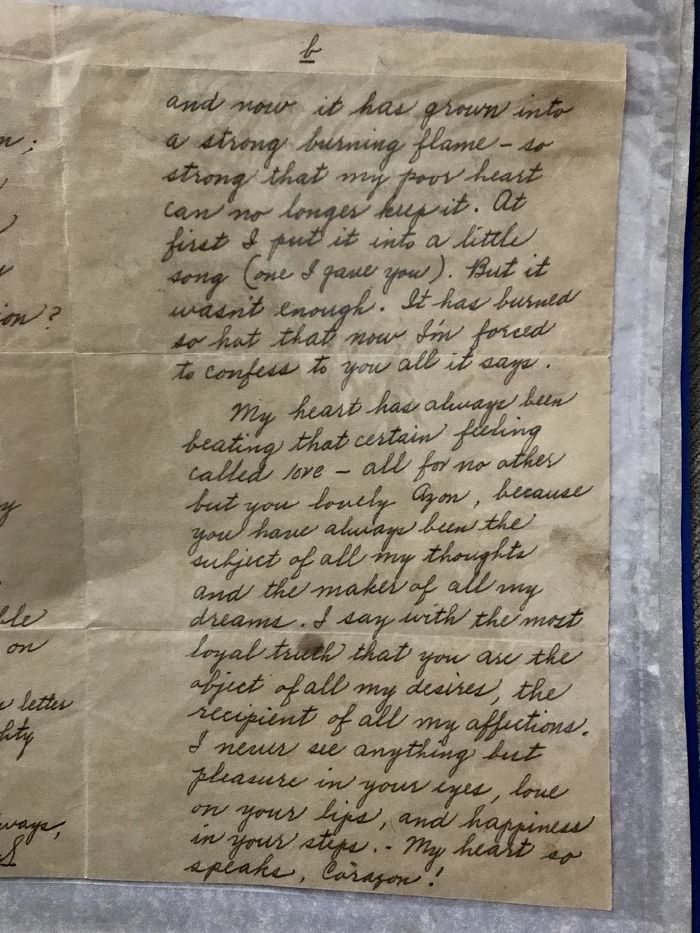 b
and now it has grown into
a strong burning flame - so
strong that my poor heart
can no longer keep it. At
first I put it into a little
song (one I gave you). But it
wasn't enough. It has burned
so hot that now I'm forced
to confess to you all it says.
My heart has always been
beating that certain feeling
called love - all for no other
but you lovely Azon, because
you have always been the
subject of all my thoughts
and the maker of all my
dreams. I say with the most
loyal truth that you are the
object of all my desires, the
recipient of all my affections.
I never see anything but
pleasure in your eyes, love
on your lips, and happiness
in your steps. - My heart so
speaks, Corazon!
ion?
on
letter